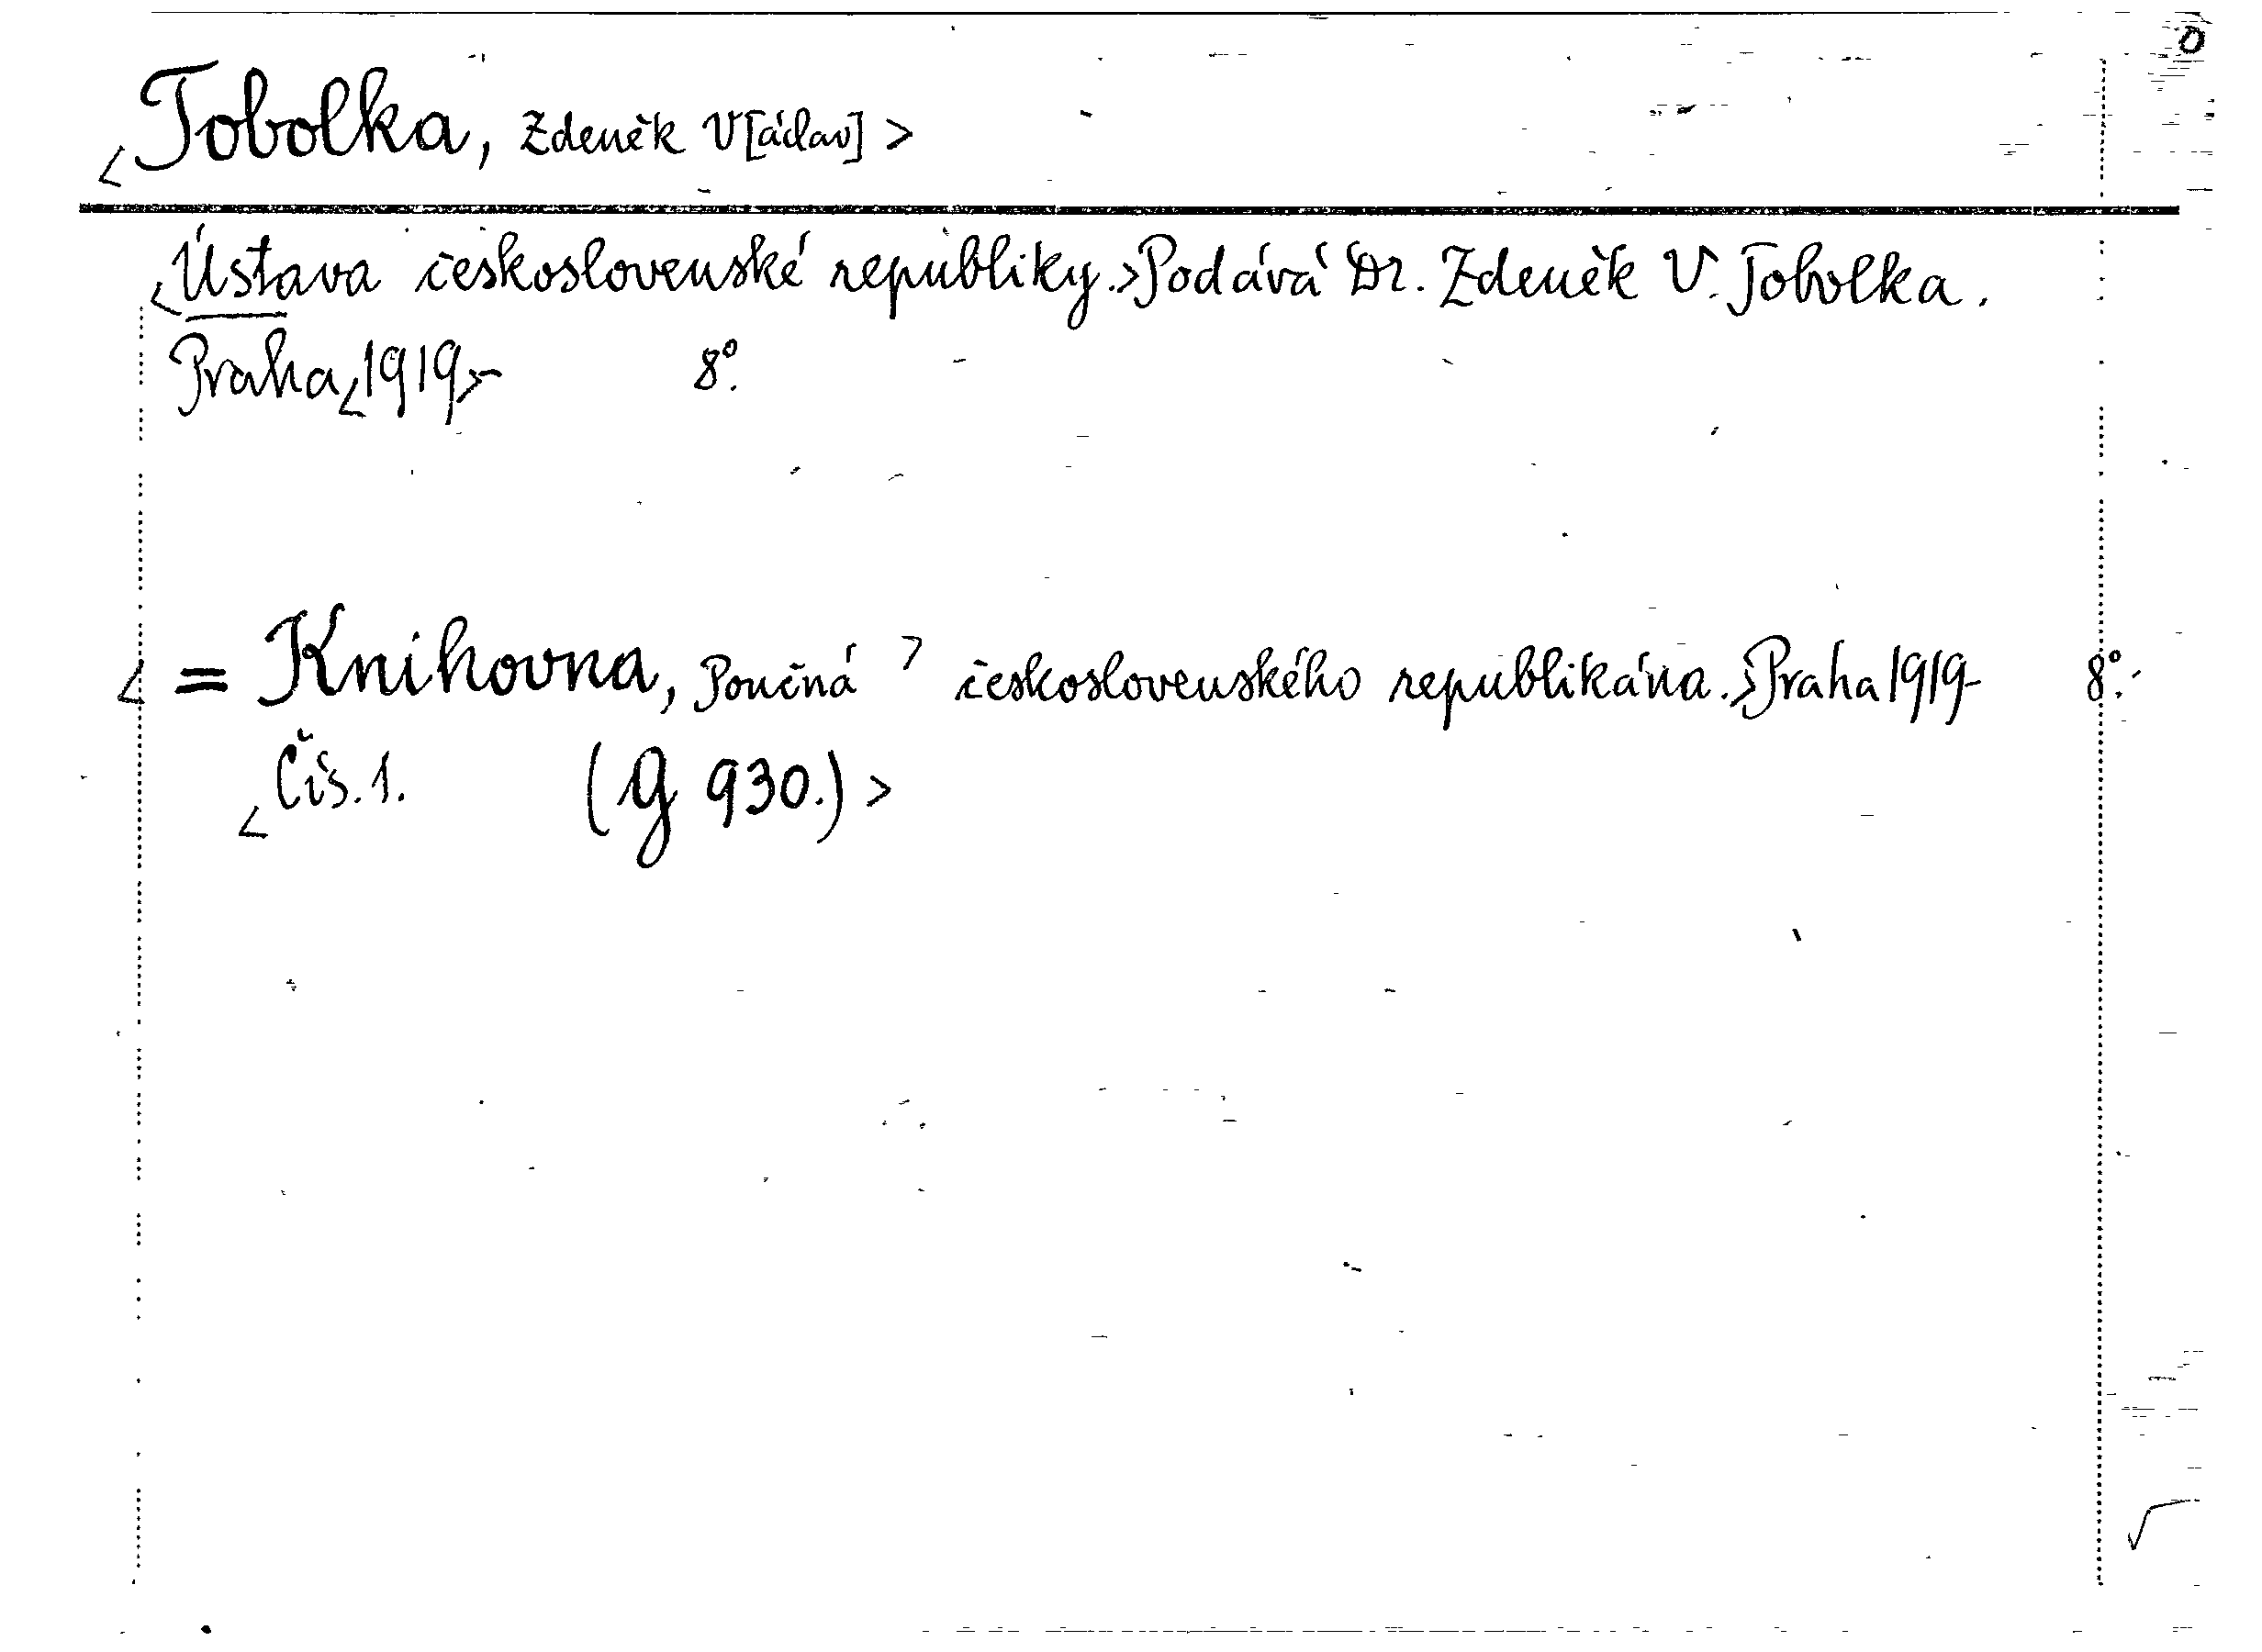 o
<Tobolka, Zdeněk V[áclav]>
<Ústava československé republiky.>Podává Dr. Zdeněk V. Tobolka.
Praha<1919>- 8°.
< = Knihovna, Poučná ʾ československého republikána.>Praha 1919- 8°.
<Čís. 1. (G 930.)>